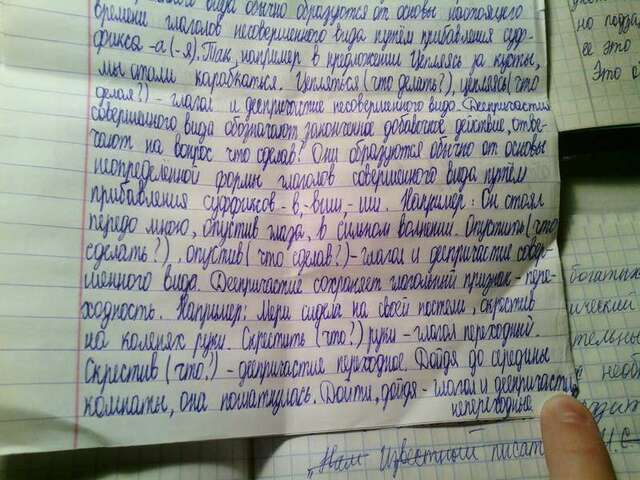 вида обычно образуются от основы настоящего
времени глаголов несовершенного вида путём прибавления суф-
фикса -а (-я). Так, например в предложении Цепляясь за кусты,
мы стали карабкаться. Цепляться (что делать?), цепляясь (что
делая?) - глагол и деепричастие несовершенного вида. Деепричастия
совершенного вида обозначают законченное добавочное действие, отве-
чают на вопрос что сделав? Они образуются обычно от основы
неопределённой формы глаголов совершенного вида путём
прибавления суффиксов -в, -вши, -ши. Например: Он стоял
передо мною, опустив глаза, в сильном волнении. Опустить (что
сделать?), опустив (что сделав?) - глагол и деепричастие совер-
шенного вида. Деепричастие сохраняет глагольный признак - пере-
ходность. Например: Мери сидела на своей постели, скрестив
на коленях руки. Скрестить (что?) руки - глагол переходный.
Скрестив (что?) - деепричастие переходное. Дойдя до середины
комнаты, она пошатнулась. Дойти, дойдя - глагол и деепричастие
непереходные
но подда
ее это
Это
богатых
ический
тельны
необ
"Нам Известный писат